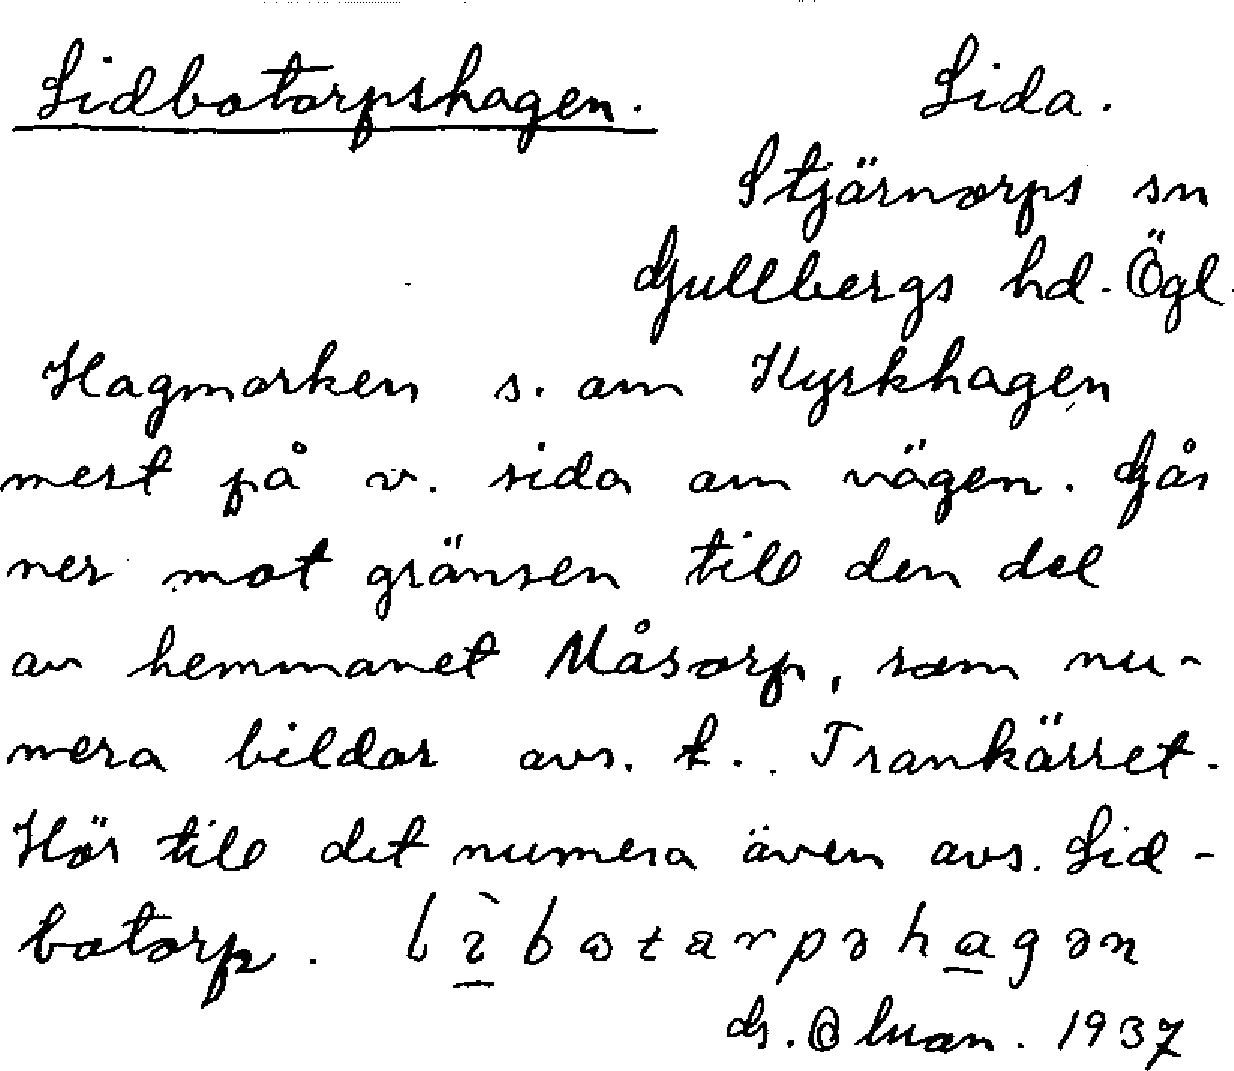 Lidbotorpshagen. Lida.
Stjärnorps sn
Gullbergs hd. Ögl.
Hagmarken s. om Kyrkhagen
mest på v. sida om vägen. Går
ner mot gränsen till den del
av hemmanet Måsorp, som nu-
mera bildar avs. t. Trankärret.
Hör till det numera även avs. Lid-
botorp.
1937